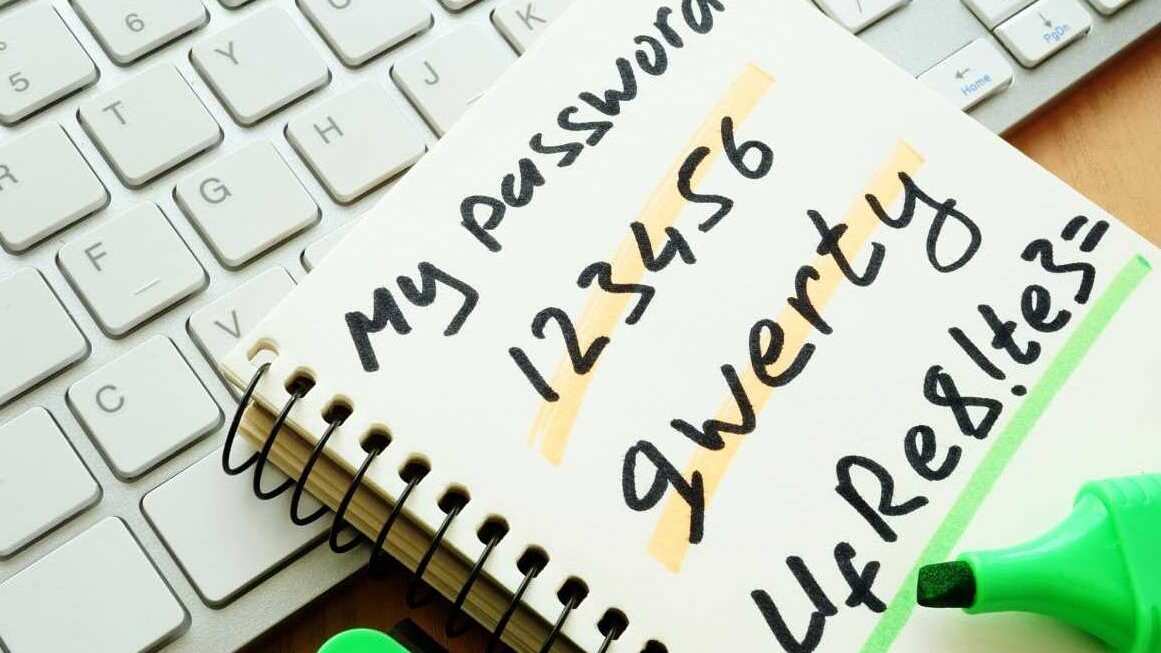 My password
123456
qwerty
UfRe8!te3=
6
Y
K
5
T
J
R
H
G
F
V
C
PgDn
Home